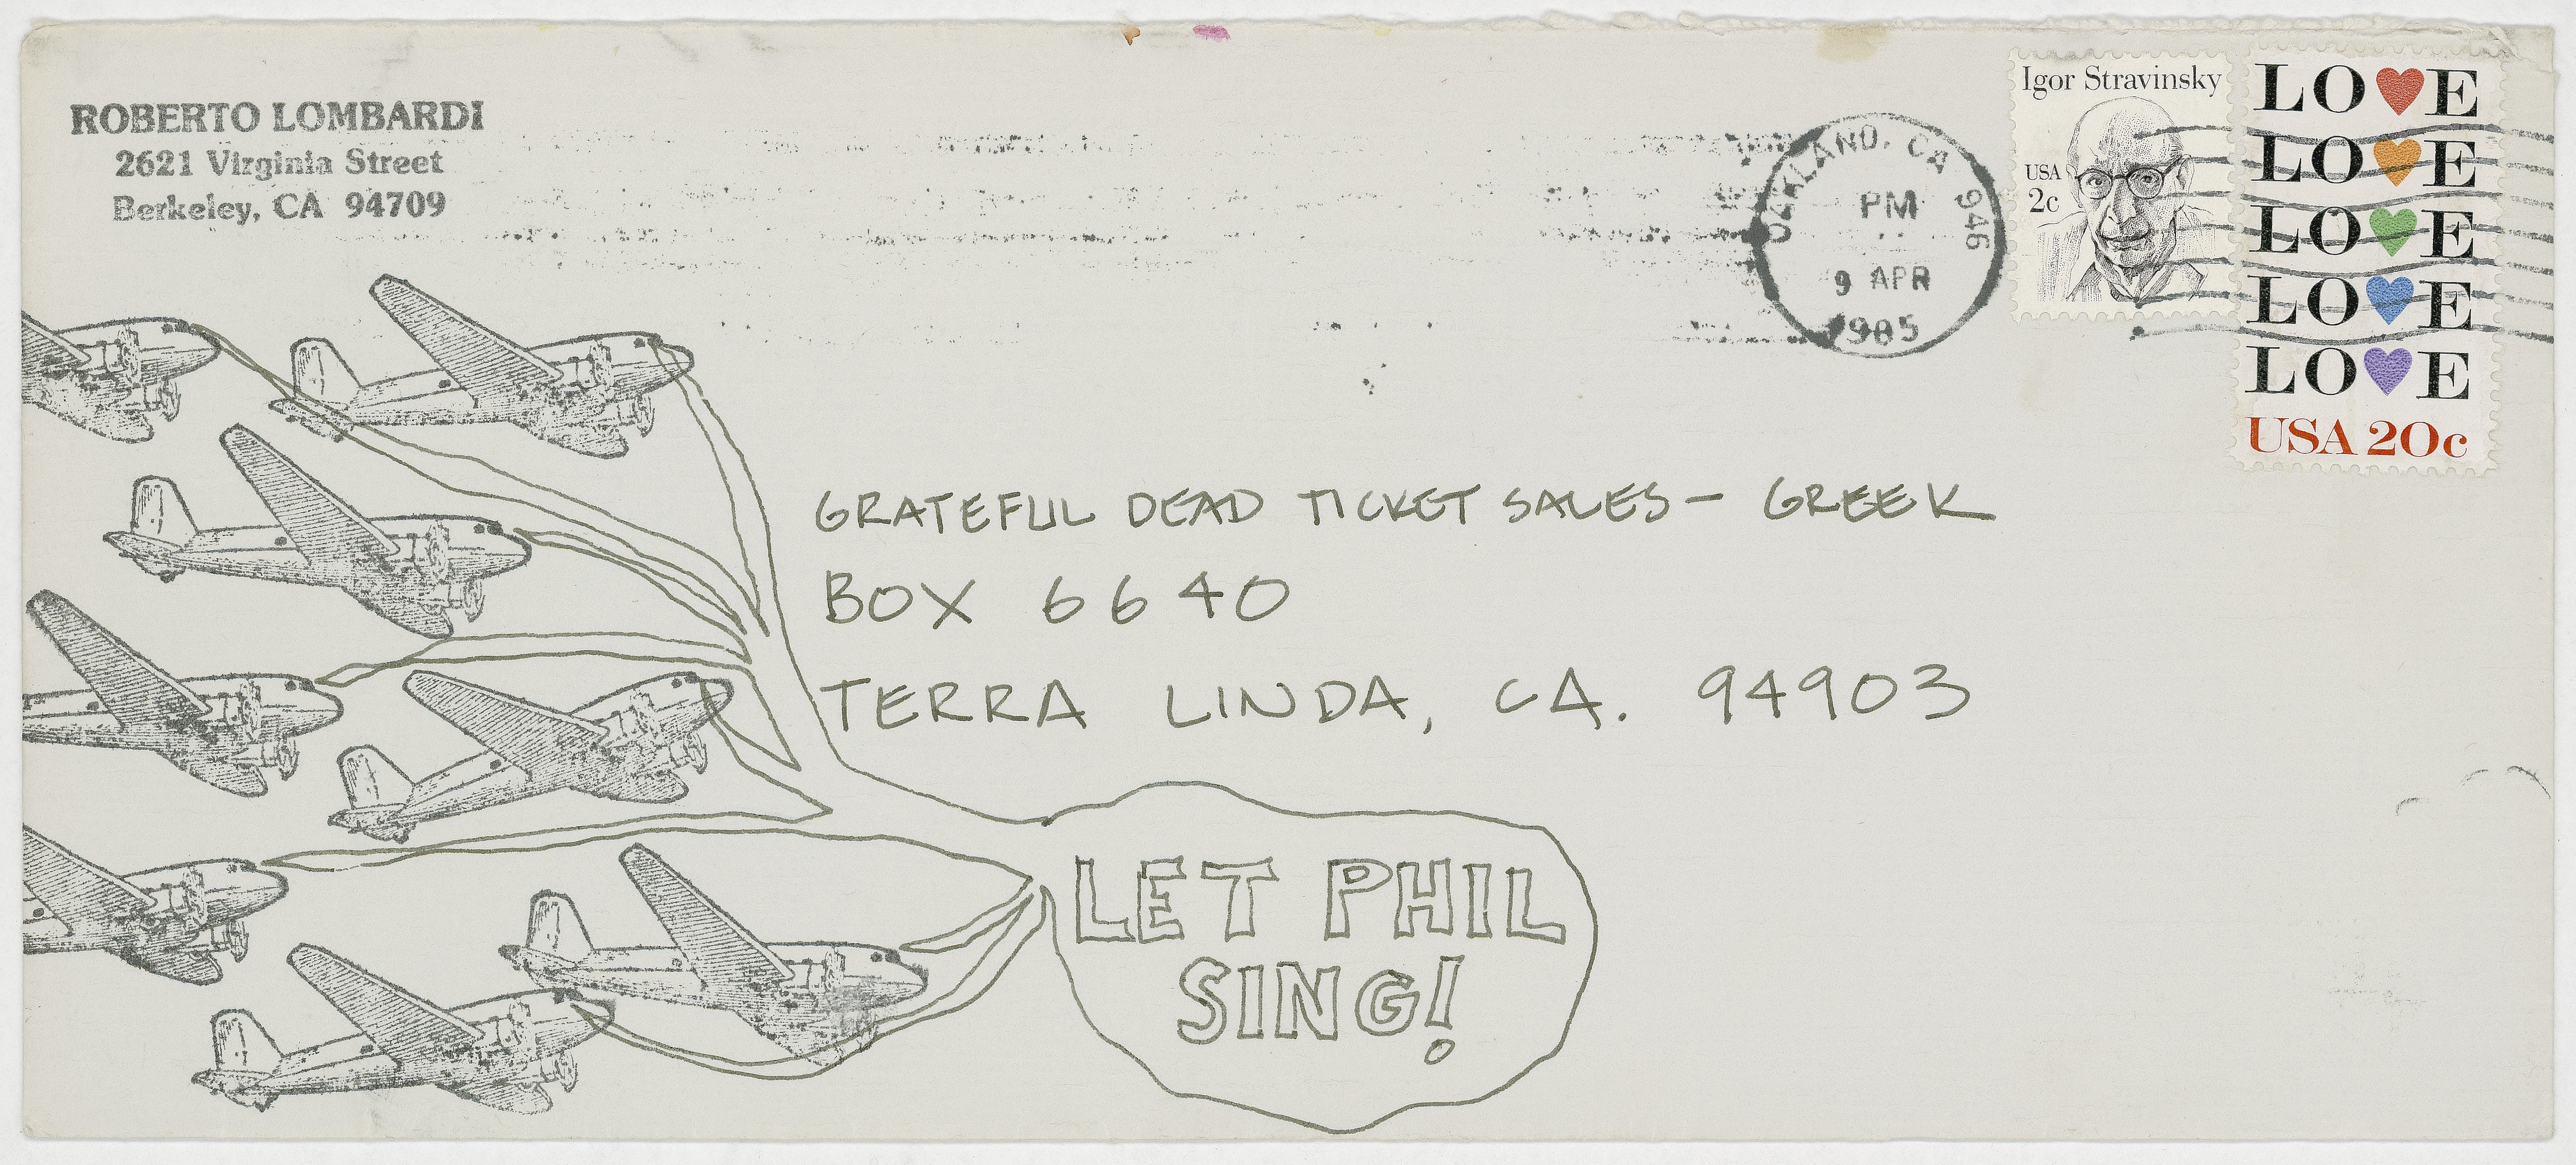 ROBERTO LOMBARDI
2621 Virginia Street
Berkeley, CA 94709
OAKLAND, CA 946
PM
9 APR
1985
Igor Stravinsky
USA
2c
LO♥E
LO♥E
LO♥E
LO♥E
LO♥E
USA 20c
GRATEFUL DEAD TICKET SALES - GREEK
BOX 6640
TERRA LINDA, CA. 94903
LET PHIL
SING!